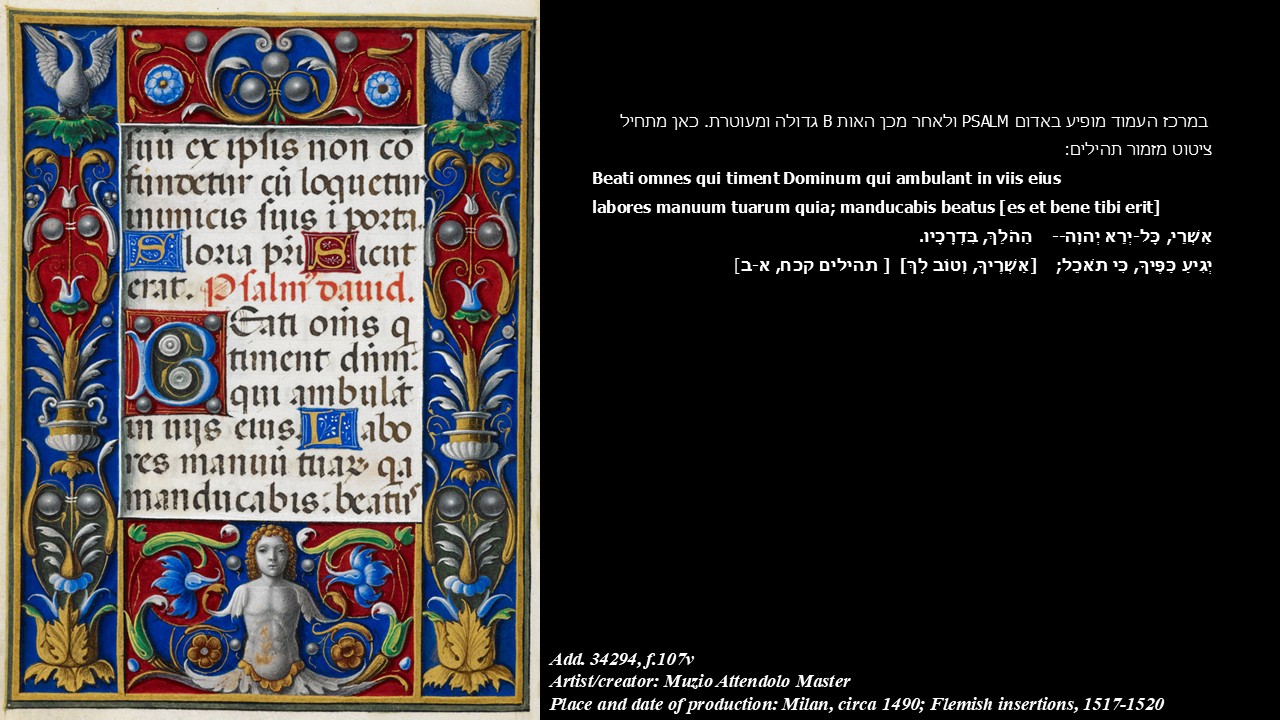 suu ex ipsis non cō
fundetur cū loquetur
inimicis suis ī porta.
Gloria pr̄i Sicut
erat. Psalm⁹ dauid.
Beati om̄s q
timent dn̄m.
qui ambulāt
in uijs eius. Labo
res manuū tuar qa
manducabis: beatus
במרכז העמוד מופיע באדום PSALM ולאחר מכן האות B גדולה ומעוטרת. כאן מתחיל
ציטוט מזמור תהילים:
Beati omnes qui timent Dominum qui ambulant in viis eius
labores manuum tuarum quia; manducabis beatus [es et bene tibi erit]
אַשְׁרֵי, כָּל-יְרֵא יְהוָה-- הַהֹלֵךְ, בִּדְרָכָיו.
יְגִיעַ כַּפֶּיךָ, כִּי תֹאכֵל; [אַשְׁרֶיךָ, וְטוֹב לָךְ] [ תהילים קכח, א-ב]
Add. 34294, f.107v
Artist/creator: Muzio Attendolo Master
Place and date of production: Milan, circa 1490; Flemish insertions, 1517-1520